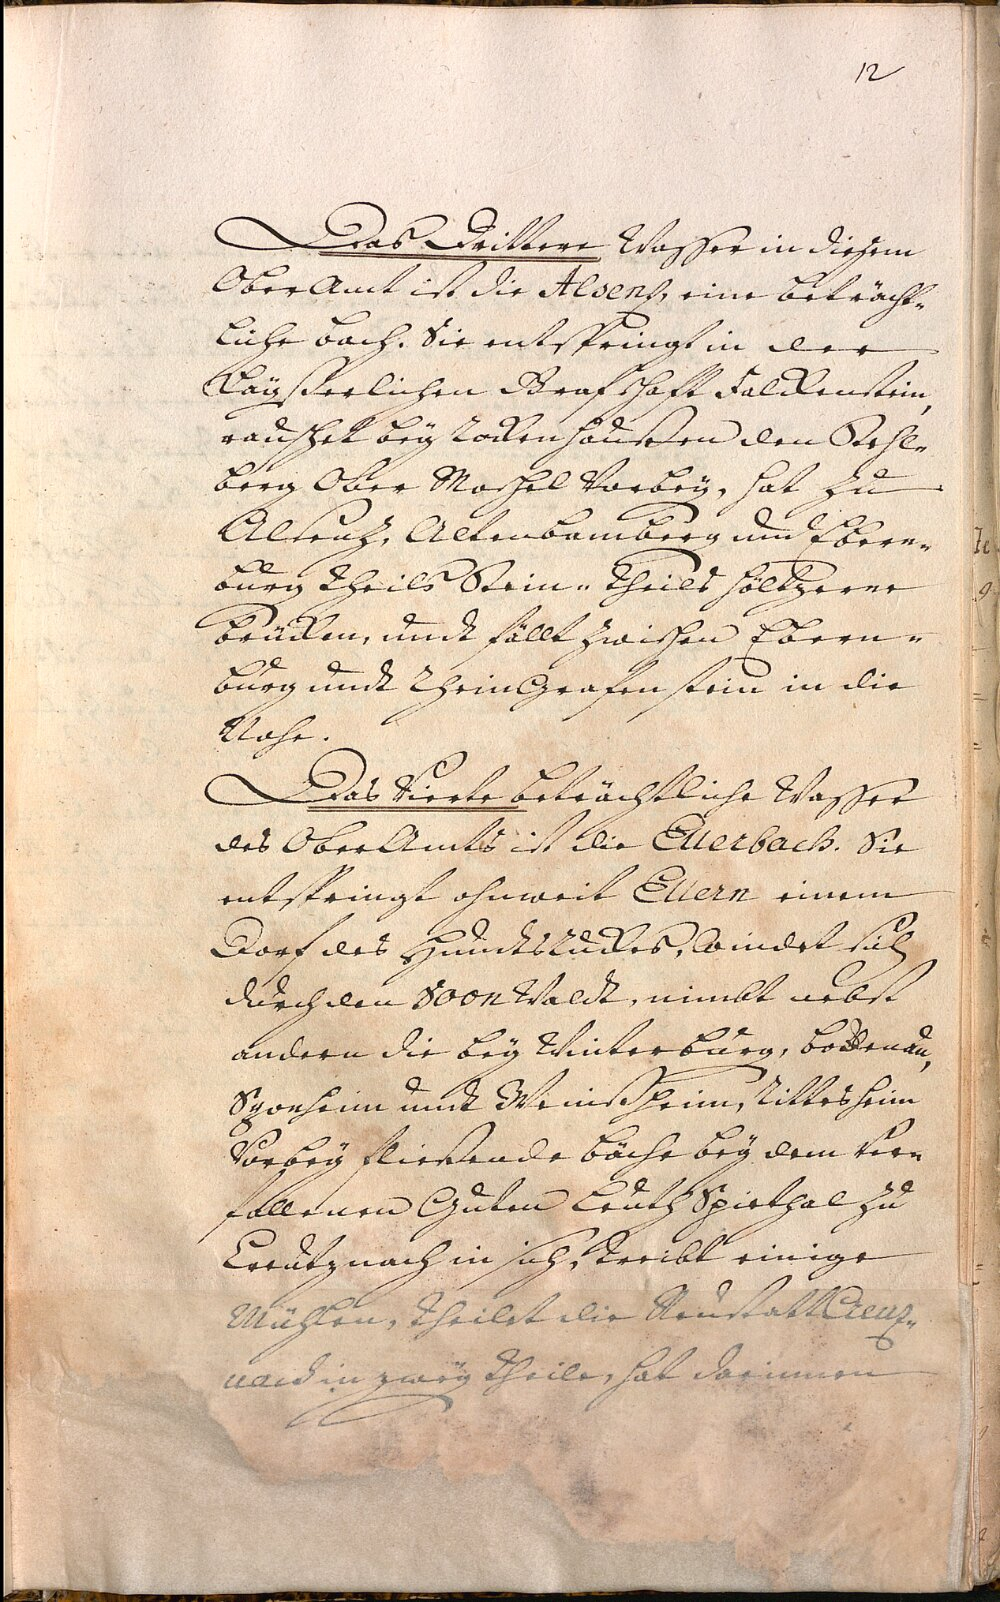 12
Das Drittere Wasser in dießem
Ober Amt ist die Alsens, eine beträcht-
liche bach. Sie entspringt in der
Kayßerlichen Grafschafft Falckenstein,
rauschet bey Rockenhaußen den Stahl-
berg Ober Moschel Vorbey, hat zu
Alsentz, Altenbamberg und Ebern-
burg theils Stein- theils höltzerne
brücken, undt fällt zwischen Ebern-
burg undt RheinGrafenstein in die
Nahe.
Das Vierte beträchtliche Wasser
des Ober Amts ist die Ellerbach. Sie
entspringt ohnweit Ellern einem
Dorf des Hundtsruckes, windet sich
durch den Soon Waldt, nimbt nebst
andern die bey Winterburg, bockenau,
Sponheim undt Weinsheim, Rittesheim
Vorbey fließende bäche bey dem ver-
fallenen Guten Leuth Spitthal zu
Creutznach in sich, treibt einige
Mühlen, theilet die Neustatt Creutz-
nach in zwey theile, hat darinnen